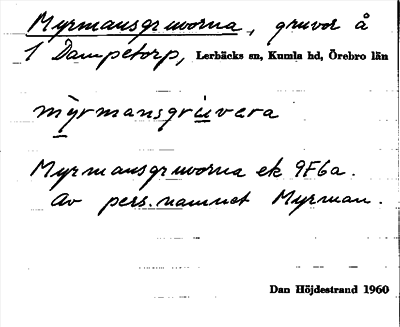 Myrmansgruvorna, gruvor å
1 Dampetorp, Lerbäcks sn, Kumla hd, Örebro län
mỳrmansgriuvera
Myrmansgruvorna ek 9F6a.
Av pers.namnet Myrman.
Dan Höjdestrand 1960